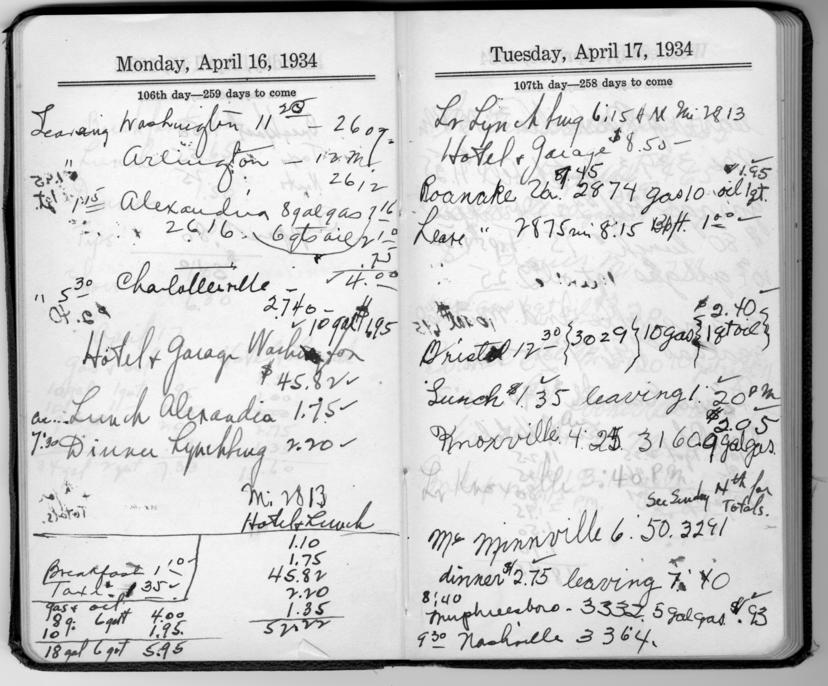 Monday, April 16, 1934
106th day—259 days to come
Leaving Washington 11 20 2609
" Arlington — 12 mi
2612
1.15 Alexandria 8 gal gas 1 16
2616. 6 qts oil 2 10
.75
4.00
" 5 30 Charlottesville
2740 —
10 gal $1.95
Hotel & Garage Washington
$45.82
Lunch Alexandia 1.75
7:30 Dinner Lynchburg 2.20
Mi 2813
Totals.
Hotel & Lunch
1.10
Breakfast 1 10
1.75
Taxi 1 35
45.82
gas & oil
2.20
8 g. 6 qt 4.00
1.35
10 g. 1.95
52.22
18 gal 6 qt 5.95
Tuesday, April 17, 1934
107th day—258 days to come
Lv Lynchburg 6:15 AM Mi 2813
Hotel & Garage $8.50 —
7.45 $1.95
Roanake Va. 2874 gas 10 oil 1 qt.
Leave " 2875 mi 8.15 Bkft. 1 00
$2.40
Bristol 12 30 3029 10 gas 1 qt oil
Lunch $1.35 leaving 1 20 PM
$2.05
Knoxville 4:25 3160 9 gal gas.
Lv Knoxville 3:40 PM
See Sunday 14th for
Totals.
Mc Minnville 6:50. 3291
dinner $2.75 leaving 7:40
8:40
Murphreesboro - 3332. 5 gal gas $.93
9 30 Nashville 3364.